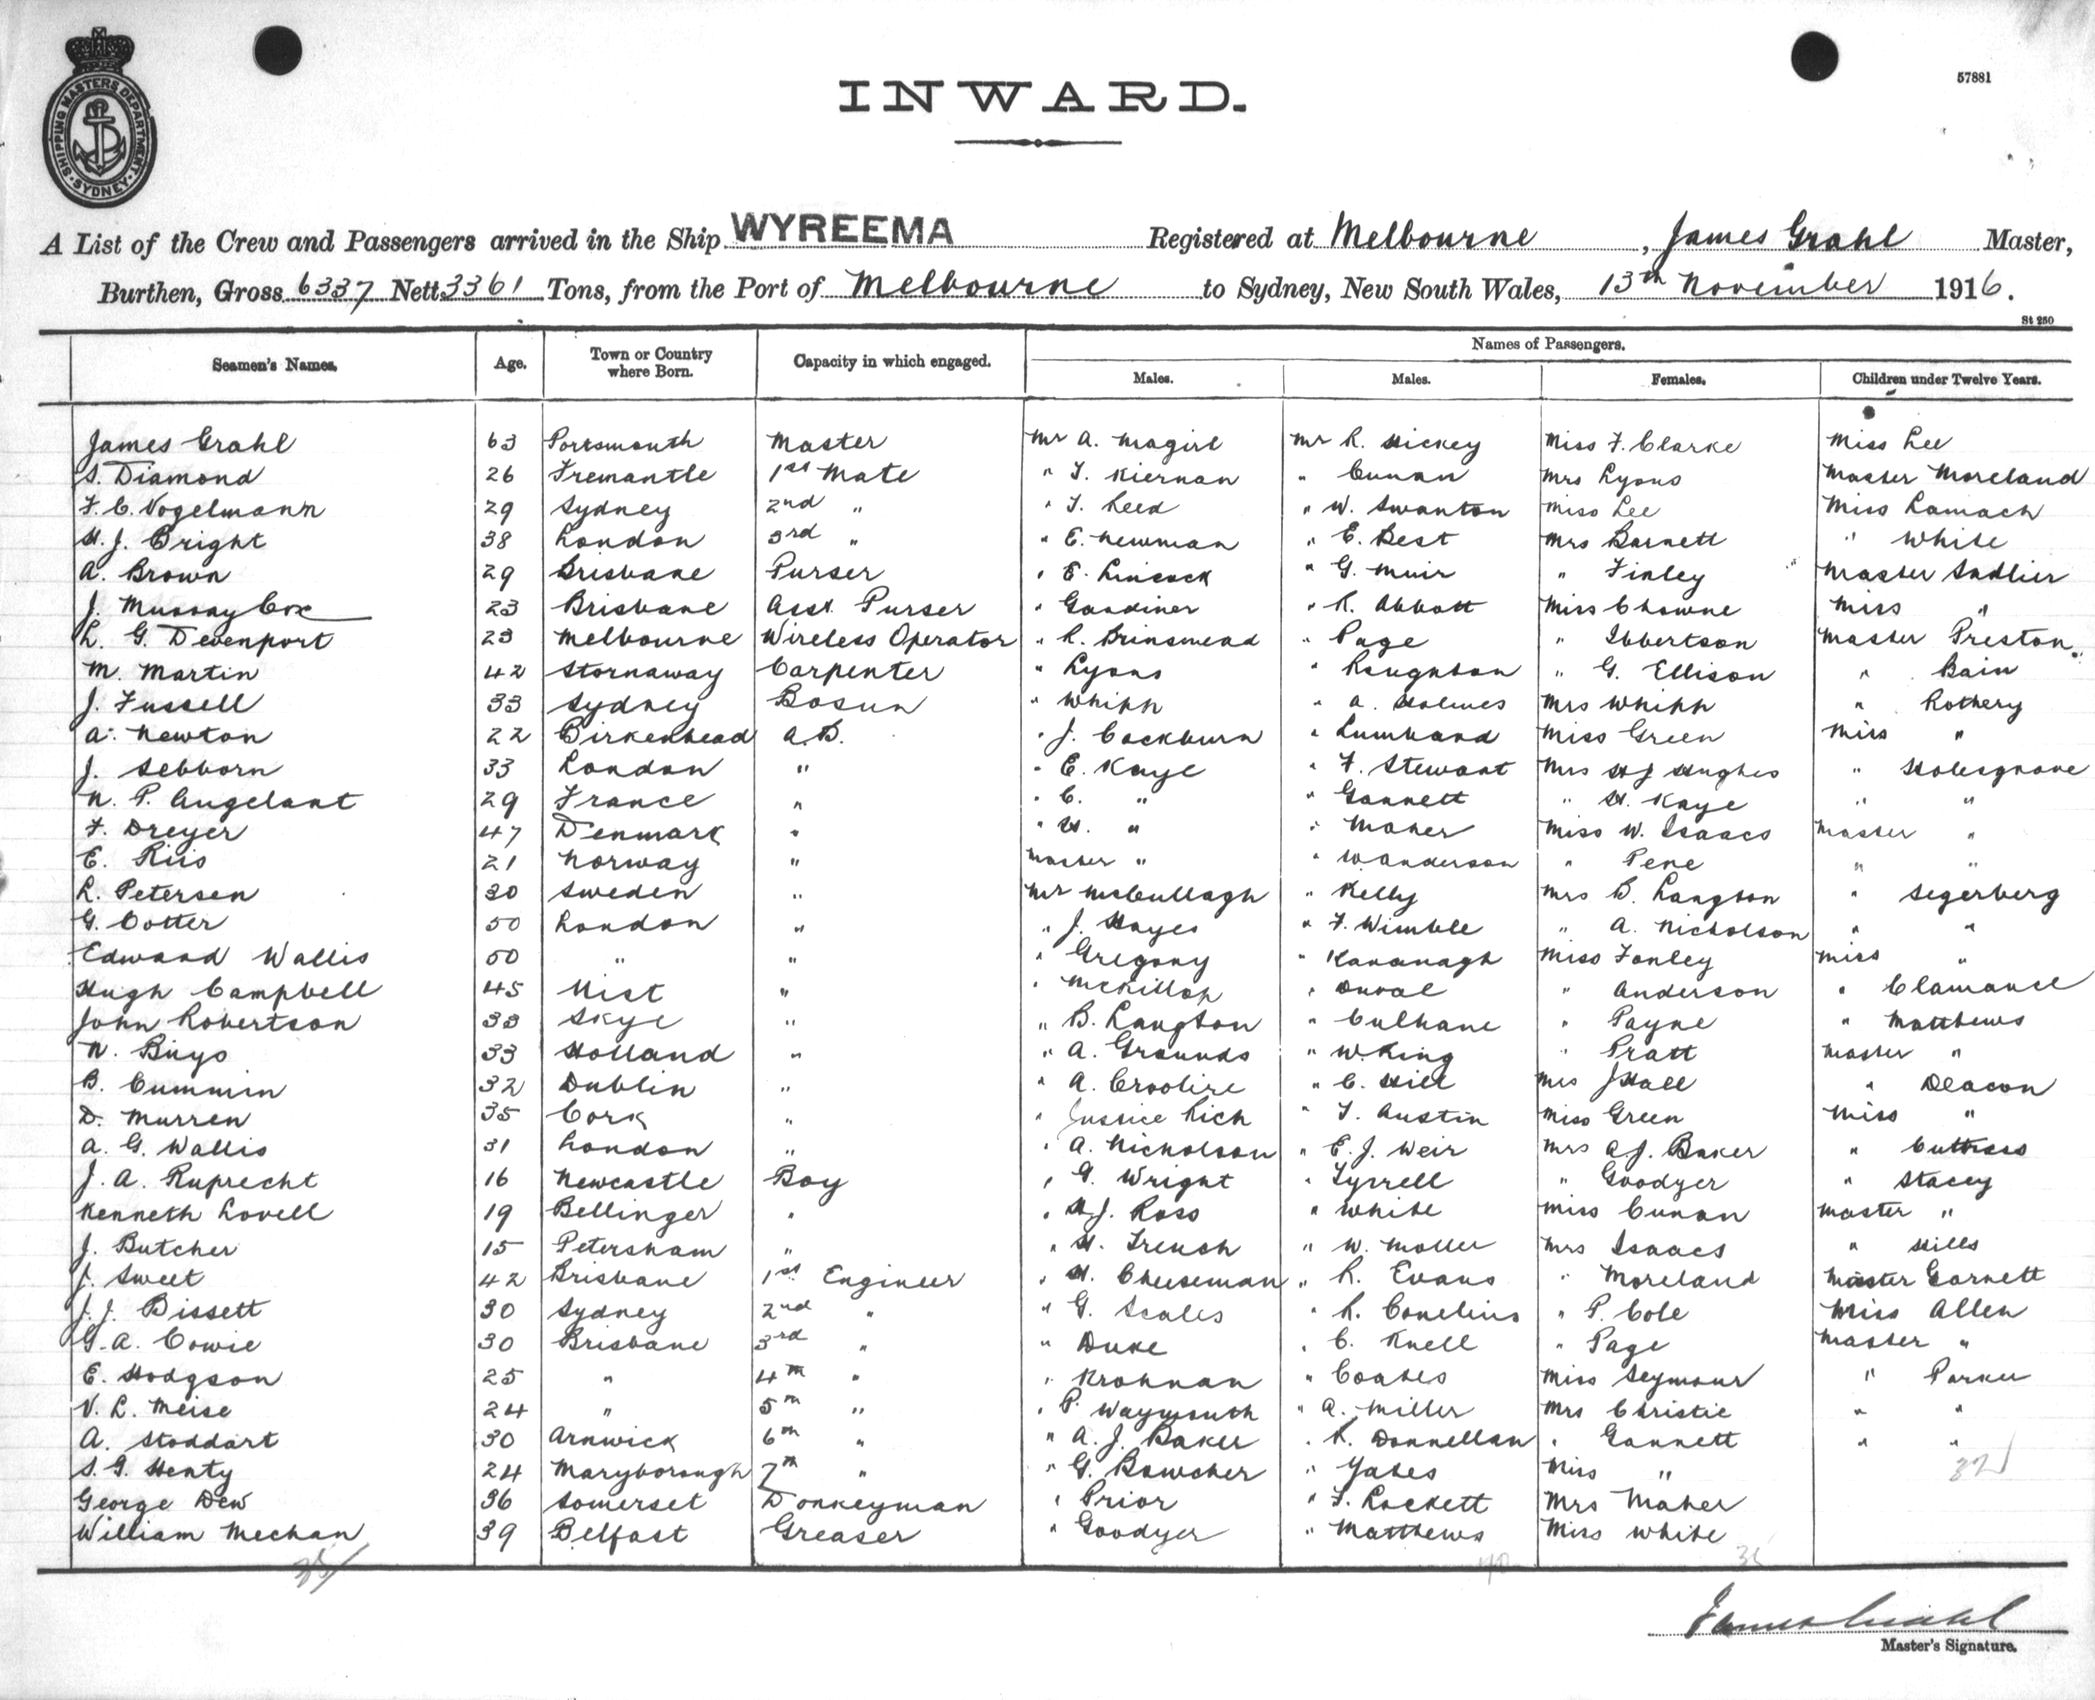 SHIPPING MASTERS DEPARTMENT. SYDNEY.
57881
INWARD.
A List of the Crew and Passengers arrived in the Ship WYREEMA Registered at Melbourne, James Grahl Master,
Burthen, Gross 6337 Nett 3361 Tons, from the Port of Melbourne to Sydney, New South Wales, 13th November 1916.
St 250
Seamen's Names. Age. Town or Country where Born. Capacity in which engaged. Names of Passengers.
Males. Males. Females. Children under Twelve Years.
James Grahl 63 Portsmouth Master Mr A. Magirl Mr R. Hickey Miss F. Clarke Miss Lee
S. Diamond 26 Fremantle 1st Mate " T. Kiernan " Cunan Mrs Lyons Master Moreland
F. C. Vogelmann 29 Sydney 2nd " " T. Leed " W. Swanton Miss Lee Miss Lamach
H. J. Bright 38 London 3rd " " E. Newman " E. Best Mrs Barnett " White
A. Brown 29 Brisbane Purser " E. Lincock " G. Muir " Finley Master Sadlier
J. Murray Cox 23 Brisbane Asst. Purser " Gardiner " R. Abbott Miss Chowne Miss "
L. G. Devenport 23 Melbourne Wireless Operator " R. Brinsmead " Page " Ibbertson Master Preston
M. Martin 42 Stornaway Carpenter " Lyons " Loughton " G. Ellison " Bain
J. Fussell 33 Sydney Bosun " Whipp " A. Holmes Mrs Whipp " Rothery
A. Newton 22 Birkenhead A.B. " J. Cockburn " Lumband Miss Green Miss "
J. Sebborn 33 London " " E. Kaye " F. Stewart Mrs H J Hughes " Holesgrove
N. P. Angelant 29 France " " C. " " Gannett " H. Kaye " "
F. Dreyer 47 Denmark " " H. " " Maher Miss W. Isaacs Master "
E. Riis 21 Norway " Master " " W Anderson " Pene " "
L. Petersen 30 Sweden " Mr McCullagh " Kelly Mrs B. Langton " Segerberg
G. Cotter 50 London " " J. Hayes " F. Wimble " A. Nicholson " "
Edward Wallis 50 " " " Gregory " Kavanagh Miss Fonley Miss "
Hugh Campbell 45 Uist " " McKillop " Duval " Anderson " Clamance
John Robertson 33 Skye " " B. Langton " Culhane " Payne " Matthews
N. Buys 33 Holland " " A. Grounds " W. King " Pratt Master "
B. Cummin 32 Dublin " " A. Crolire " C. Hill Mrs J Hall " Deacon
D. Murren 35 Cork " " Justice Rich " T. Austin Miss Green Miss "
A. G. Wallis 31 London " " A. Nicholson " E. J. Weir Mrs A J. Baker "
J. A. Ruprecht 16 Newcastle Boy " G. Wright " Tyrrell " Goodyer " Stacey
Kenneth Lovell 19 Bellinger " " H J. Ross " White Miss Cunan Master "
J. Butcher 15 Petersham " " H. Trench " W. Moller Mrs Isaacs " Hills
J. Sweet 42 Brisbane 1st Engineer " H. Cheeseman " R. Evans " Moreland Master Garnett
J. J. Bissett 30 Sydney 2nd " " G. Scales " R. Conelius " P. Cole Miss Allen
G. A. Cowie 30 Brisbane 3rd " " Duke " C. Knell " Page Master "
E. Hodgson 25 " 4th " " Krohnan " Coates Miss Seymour " Parker
V. L. Meise 24 " 5th " " P. Waymouth " A. Miller Mrs Christie " "
A. Stoddart 30 Arnwick 6th " " A. J. Baker " R. Donnellan " Gannett " "
S. G. Henty 24 Maryborough 7th " " G. Bowcher " Yates Miss " 32
George Dew 36 Somerset Donkeyman " Prior " F. Lockett Mrs Maher
William Mechan 39 Belfast Greaser " Goodyer " Matthews Miss White
35
James Grahl
Master's Signature.